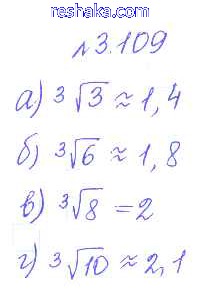 reshaka.com
№3.109
а) ³√3 ≈ 1,4
б) ³√6 ≈ 1,8
в) ³√8 = 2
г) ³√10 ≈ 2,1